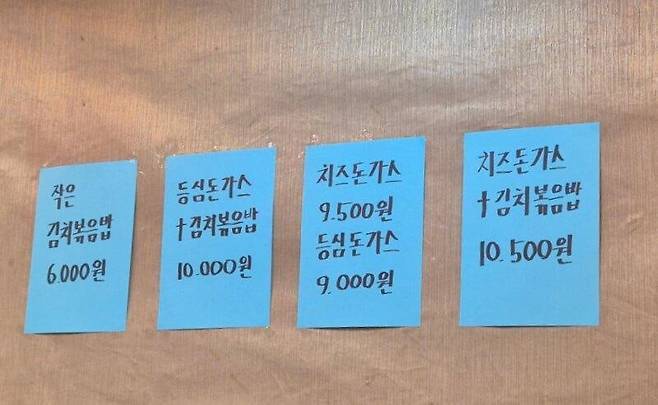 작은
김치볶음밥
6.000원
등심돈가스
+김치볶음밥
10.000원
치즈돈가스
9.500원
등심돈가스
9.000원
치즈돈가스
+김치볶음밥
10.500원